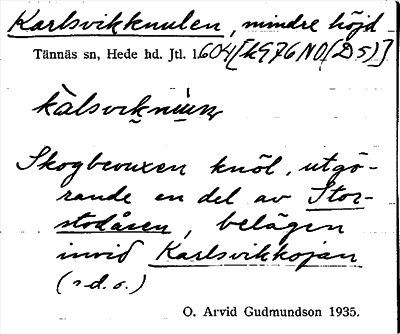 Karlsvikknulen, mindre höjd
Tännäs sn, Hede hd. Jtl. 1604[k976NO(DS)]
Skogbevuxen knöl, utgö-
rande en del av Stor-
stodåsen, belägen
invid Karlsvikkojan
(s.d.o.)
O. Arvid Gudmundson 1935.